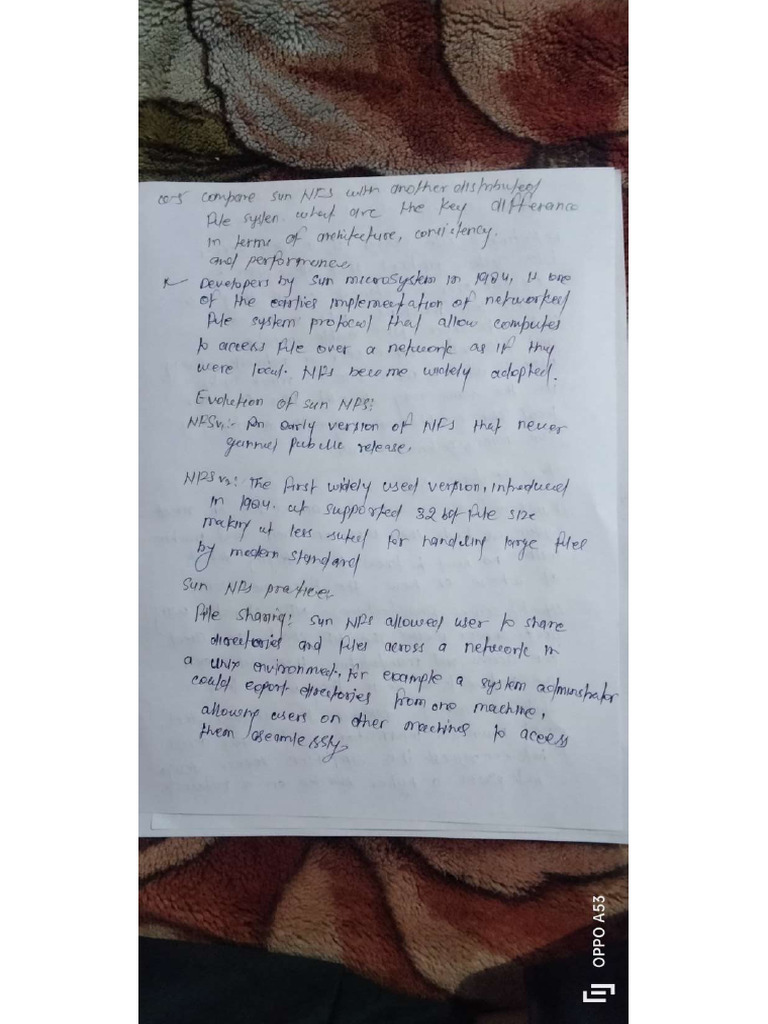 Q-5 compare sun NFS with another distributed
file system what are the key difference
in terms of architecture, consistency,
and performance
Developers by sun microsystem in 1984, it one
of the earlies implementation of networked
file system protocol that allow computes
to access file over a network as if they
were local. NFS become widely adopted.
Evolution of sun NFS:
NFSv1:- An early version of NFS that never
public release.
NFSv2: The first widely used version, introduced
in 1984. it supported 32 bit file size
making it less suted for handeling large files
by modern standard
Sun NFS practices
File sharing: sun NFS allowed user to share
directories and files across a network in
a unix environment. for example a system adminstrator
could export directories from one machine,
allowing users on other machines to access
them seamlessly,
OPPO A53